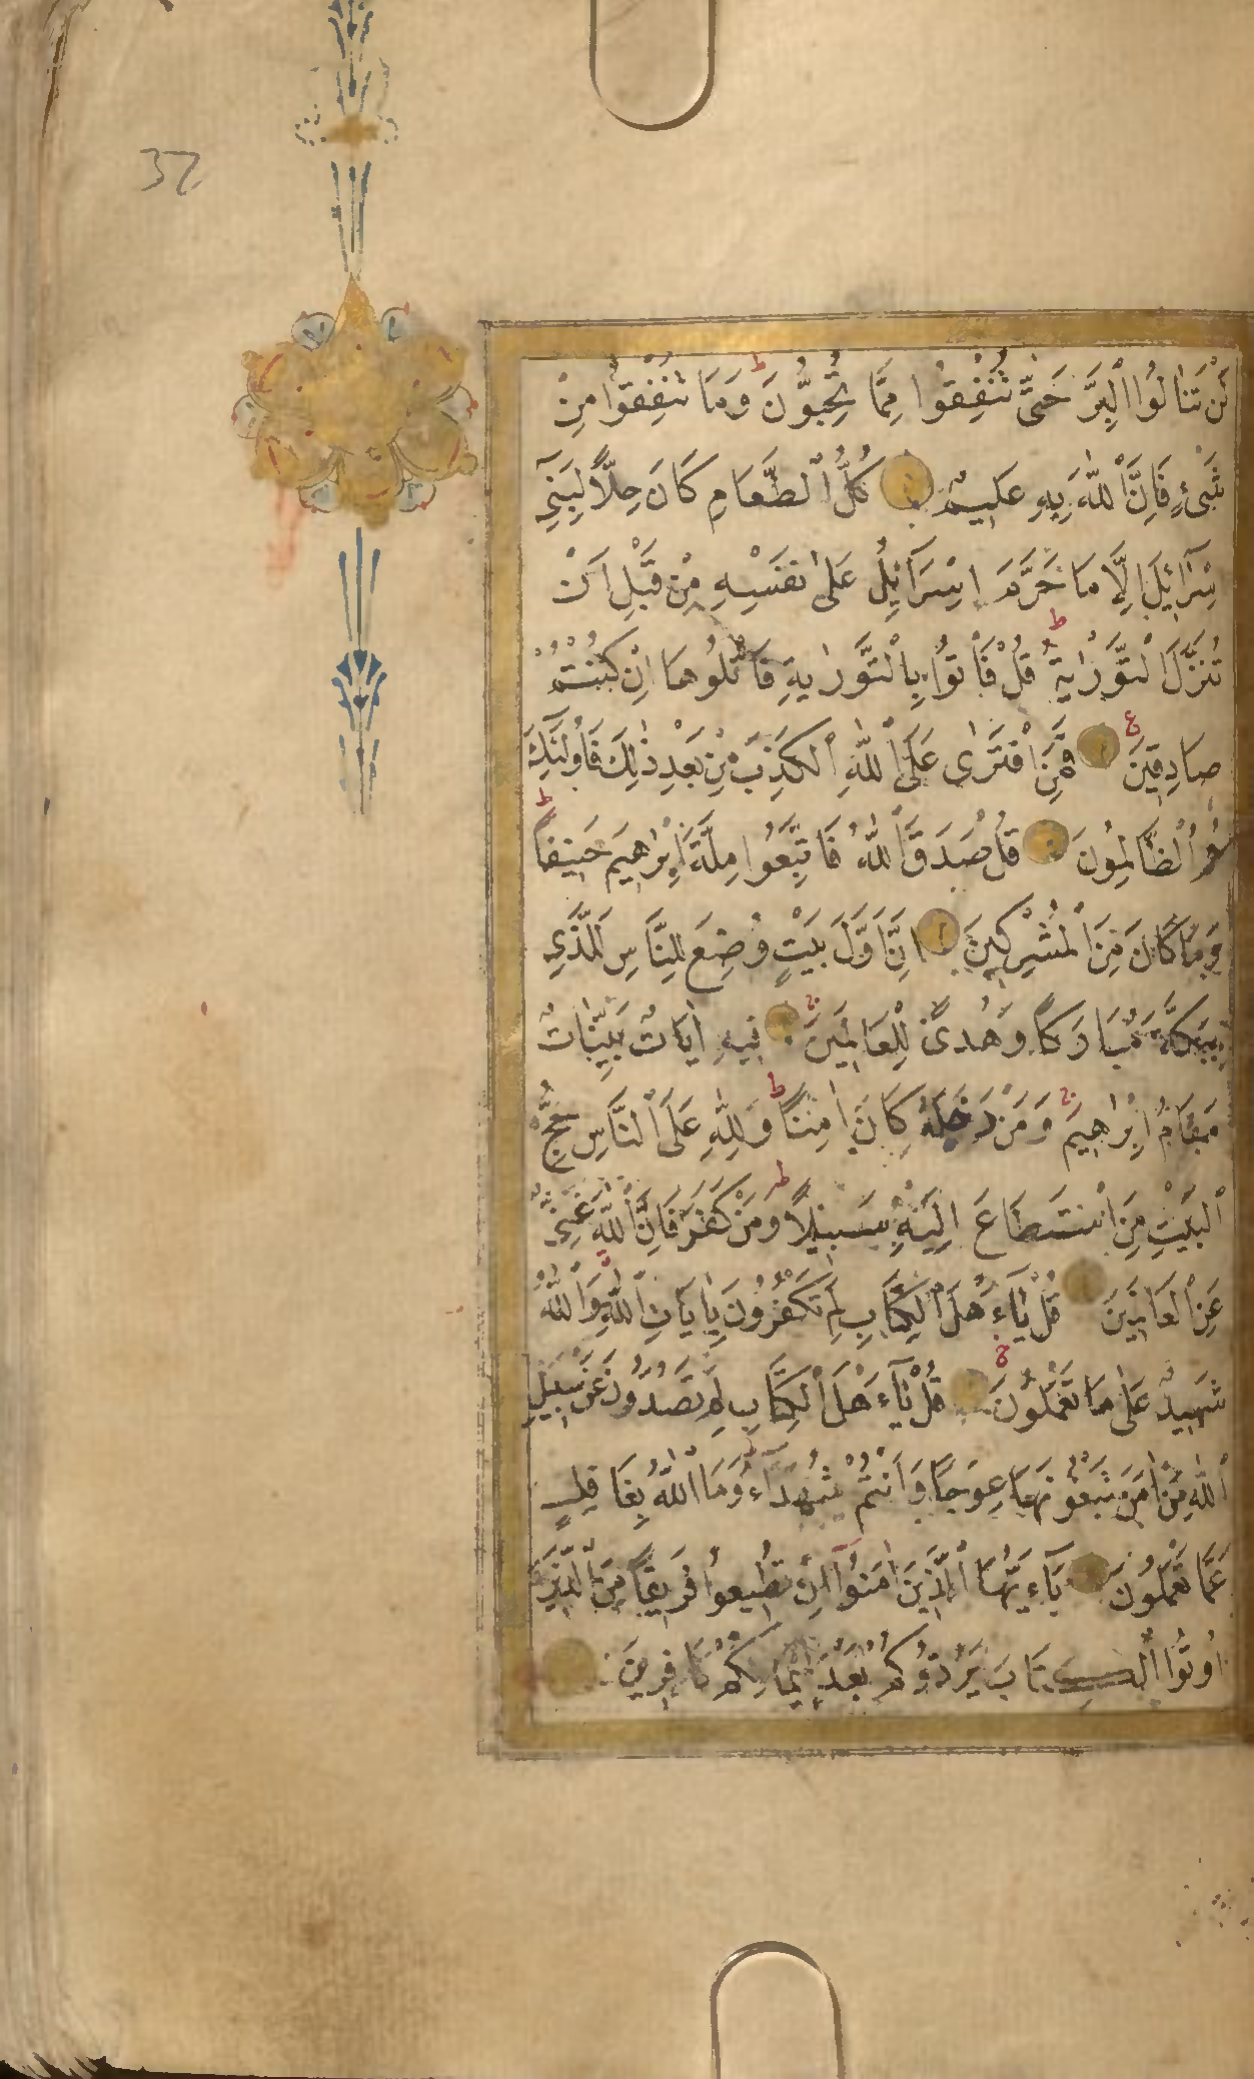 32
لَنْ تَنَالُوا الْبِرَّ حَتَّى تُنْفِقُوا مِمَّا تُحِبُّونَ ط وَمَا تُنْفِقُوا مِنْ
شَىْءٍ فَاِنَّ اللّٰهَ بِهِ عَلِيمٌ كُلُّ الطَّعَامِ كَانَ حِلًّا لِبَنِٓى
اِسْرَٓائِلَ اِلَّا مَا حَرَّمَ اِسْرَٓائِلُ عَلٰى نَفْسِهِ مِنْ قَبْلِ اَنْ
تُنَزَّلَ التَّوْرٰيةُ ط قُلْ فَأْتُوا بِالتَّوْرٰيةِ فَاتْلُوهَا اِنْ كُنْتُمْ
صَادِقِينَ ع فَمَنِ افْتَرٰى عَلَى اللّٰهِ الْكَذِبَ مِنْ بَعْدِ ذٰلِكَ فَاُولٰٓئِكَ
هُمُ الظَّالِمُونَ قُلْ صَدَقَ اللّٰهُ فَاتَّبِعُوا مِلَّةَ اِبْرٰهِيمَ حَنِيفًا ط
وَمَا كَانَ مِنَ الْمُشْرِكِينَ اِنَّ اَوَّلَ بَيْتٍ وُضِعَ لِلنَّاسِ لَلَّذِى
بِبَكَّةَ مُبَارَكًا وَهُدًى لِلْعَالَمِينَ ج فِيهِ اٰيَاتٌ بَيِّنَاتٌ
مَقَامُ اِبْرٰهِيمَ ج وَمَنْ دَخَلَهُ كَانَ اٰمِنًا ط وَلِلّٰهِ عَلَى النَّاسِ حِجُّ
الْبَيْتِ مَنِ اسْتَطَاعَ اِلَيْهِ سَبِيلًا ط وَمَنْ كَفَرَ فَاِنَّ اللّٰهَ غَنِىٌّ
عَنِ الْعَالَمِينَ قُلْ يَٓاءَهْلَ الْكِتَابِ لِمَ تَكْفُرُونَ بِاٰيَاتِ اللّٰهِ وَاللّٰهُ
شَهِيدٌ عَلٰى مَا تَعْمَلُونَ قُلْ يَٓاءَهْلَ الْكِتَابِ لِمَ تَصُدُّونَ عَنْ سَبِيلِ
اللّٰهِ مَنْ اٰمَنَ تَبْغُونَهَا عِوَجًا وَاَنْتُمْ شُهَدَٓاءُ وَمَا اللّٰهُ بِغَافِلٍ
عَمَّا تَعْمَلُونَ يَٓاءَيُّهَا الَّذِينَ اٰمَنُٓوا اِنْ تُطِيعُوا فَرِيقًا مِنَ الَّذِينَ
اُوتُوا الْكِتَابَ يَرُدُّوكُمْ بَعْدَ اِيمَانِكُمْ كَافِرِينَ